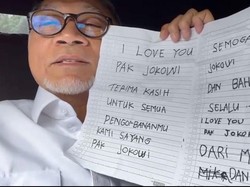 I LOVE YOU
PAK JOKOWI
TERIMA KASIH
UNTUK SEMUA
PENGORBANANMU
KAMI SAYANG
PAK JOKOWI
SEMOGA
JOKOWI
DAN BAH
SELALU
I LOVE YOU
PAK JOKOWI
DARI M
DAN